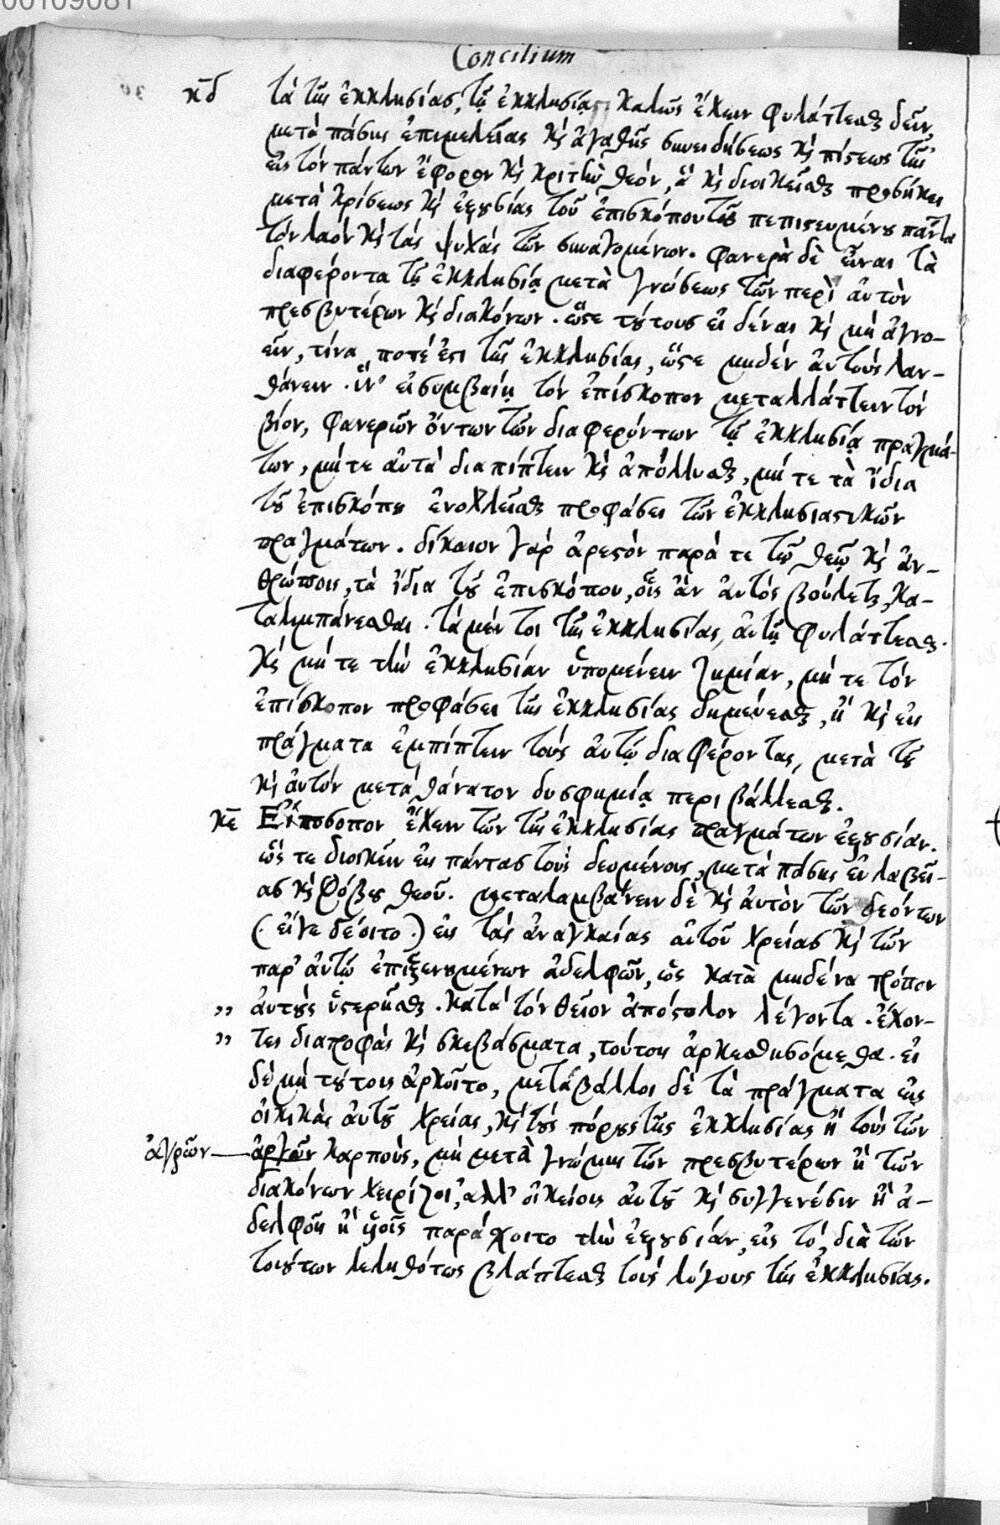 00109081
Concilium
κδ τὰ τῆς ἐκκλησίας, τῇ ἐκκλησίᾳ καλῶς ἔχειν φυλάττεσθαι δεῖν
μετὰ πάσης ἐπιμελείας καὶ ἀγαθῆς συνειδήσεως καὶ πίστεως τῆς
εἰς τὸν πάντων ἔφορον καὶ κριτὴν θεόν, ἃ καὶ διοικεῖσθαι προσήκει
μετὰ κρίσεως καὶ ἐξουσίας τοῦ ἐπισκόπου τοῦ πεπιστευμένου πάντα
τὸν λαὸν καὶ τὰς ψυχὰς τῶν συναγομένων. φανερὰ δὲ εἶναι τὰ
διαφέροντα τῇ ἐκκλησίᾳ μετὰ γνώσεως τῶν περὶ αὐτὸν
πρεσβυτέρων καὶ διακόνων. ὥστε τούτους εἰδέναι καὶ μὴ ἀγνο-
εῖν, τίνα ποτέ ἐστι τῆς ἐκκλησίας, ὥστε μηδὲν αὐτοὺς λαν-
θάνειν. ἵν' εἰ συμβαίη τὸν ἐπίσκοπον μεταλλάττειν τὸν
βίον, φανερῶν ὄντων τῶν διαφερόντων τῇ ἐκκλησίᾳ πραγμά-
των, μήτε αὐτὰ διαπίπτειν καὶ ἀπόλλυσθαι, μήτε τὰ ἴδια
τοῦ ἐπισκόπου ἐνοχλεῖσθαι προφάσει τῶν ἐκκλησιαστικῶν
πραγμάτων. δίκαιον γὰρ ἀρεστὸν παρά τε τῷ θεῷ καὶ ἀν-
θρώποις, τὰ ἴδια τοῦ ἐπισκόπου, οἷς ἂν αὐτὸς βούλεται, κα-
ταλιμπάνεσθαι. τὰ μέντοι τῆς ἐκκλησίας, αὐτῇ φυλάττεσθαι.
καὶ μήτε τὴν ἐκκλησίαν ὑπομένειν ζημίαν, μήτε τὸν
ἐπίσκοπον προφάσει τῆς ἐκκλησίας δημεύεσθαι, ἢ καὶ εἰς
πράγματα ἐμπίπτειν τοὺς αὐτῷ διαφέροντας, μετὰ τοῦ
καὶ αὐτὸν μετὰ θάνατον δυσφημίᾳ περιβάλλεσθαι.
κε Ἐπίσκοπον ἔχειν τῶν τῆς ἐκκλησίας πραγμάτων ἐξουσίαν.
ὥστε διοικεῖν εἰς πάντας τοὺς δεομένους, μετὰ πάσης εὐλαβεί-
ας καὶ φόβου θεοῦ. μεταλαμβάνειν δὲ καὶ αὐτὸν τῶν δεόντων
(εἴγε δέοιτο) εἰς τὰς ἀναγκαίας αὐτοῦ χρείας καὶ τῶν
παρ' αὐτῷ ἐπιξενουμένων ἀδελφῶν, ὡς κατὰ μηδένα τρόπον
„ αὐτοὺς ὑστερεῖσθαι. κατὰ τὸν θεῖον ἀπόστολον λέγοντα. ἔχον-
„ τες διατροφὰς καὶ σκεπάσματα, τούτοις ἀρκεσθησόμεθα. εἰ
δὲ μὴ τούτοις ἀρκοῖτο, μεταβάλλοι δὲ τὰ πράγματα εἰς
οἰκικὰς αὐτοῦ χρείας, καὶ τοὺς πόρους τῆς ἐκκλησίας ἢ τοὺς τῶν
ἀγρῶν— ἀργῶν καρποὺς, μὴ μετὰ γνώμης τῶν πρεσβυτέρων ἢ τῶν
διακόνων χειρίζοι, ἀλλ' οἰκείοις αὐτοῦ καὶ συγγενέσιν ἢ ἀ-
δελφοῖς ἢ υἱοῖς παράσχοιτο τὴν ἐξουσίαν, εἰς τὸ, διὰ τῶν
τοιούτων λεληθότως βλάπτεσθαι τοὺς λόγους τῆς ἐκκλησίας.